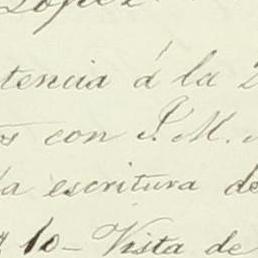 Lopez
tencia á la
con P. M.
la escritura de
lo - Vista de